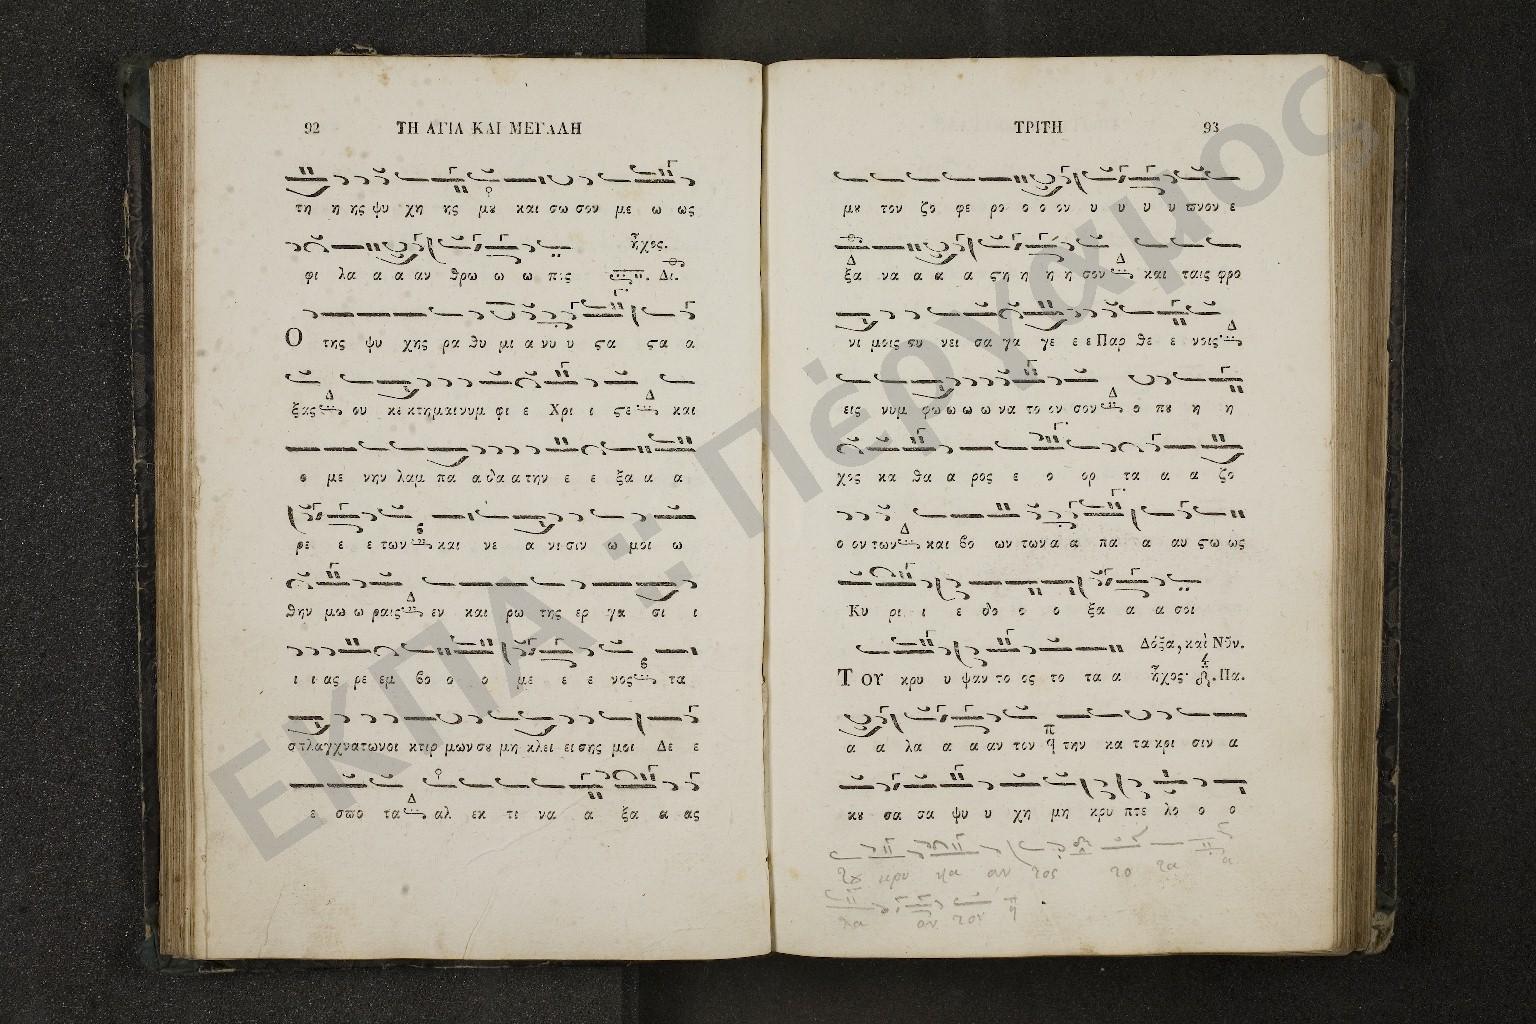 92 ΤΗ ΑΓΙΑ ΚΑΙ ΜΕΓΑΛΗ
τη η ης ψυ χη ης μȣ και σω σον με ω ως
ἦχος.
φι λα α α αν θρω ω ω πος Δι.
Ο της ψυ χης ρα θυ μι α νυ υ ϛα ϛα α
ξας Δ ου κε κτημαινυμ φι ε Χρι ι ϛε Δ και
ο με νην λαμ πα α δα α την ε ε ξα α α
ρε ε ε των και νε α νι σιν ω μοι ω
θην μω ω ραις Δ εν και ρω της ερ γα σι ι
ι ι ας ρε εμ βο ο ο με ε ε νος τα
σπλαγχνατωνοι κτιρ μων σȣ μη κλει ει σης μοι Δε ε
ε σπο τα Δ αλ εκ τι να α ξα α ας
ΤΡΙΤΗ 93
μȣ τον ζο φε ρο ο ο ον υ υ υ υ πνον ε
ξα να α α α ϛη η η η σον Δ και ταις φρο
νι μοις συ νει σα γα γε ε ε Παρ θε ε νοις Δ
εις νυμ φω ω ω ω να το ον σον Δ ο πȣ η η
χος κα θα α ρος ε ο ορ τα α α ζο
ο ον των Δ και βο ων των α α πα α αυ ϛω ως
Κυ ρι ι ε δο ο ο ξα α α σοι
Δόξα, καὶ Νῦν.
Του κρυ υ ψαν το ος το τα α ἦχος Πα.
α α λα α α αν τον π την κα τα κρι σιν α
κȣ σα σα ψυ υ χη μη κρυ πτε λο ο ο
τȣ κρυ ψα αν τος το τα α
λα αν τον
ΕΚΠΑ :: Πέργαμος